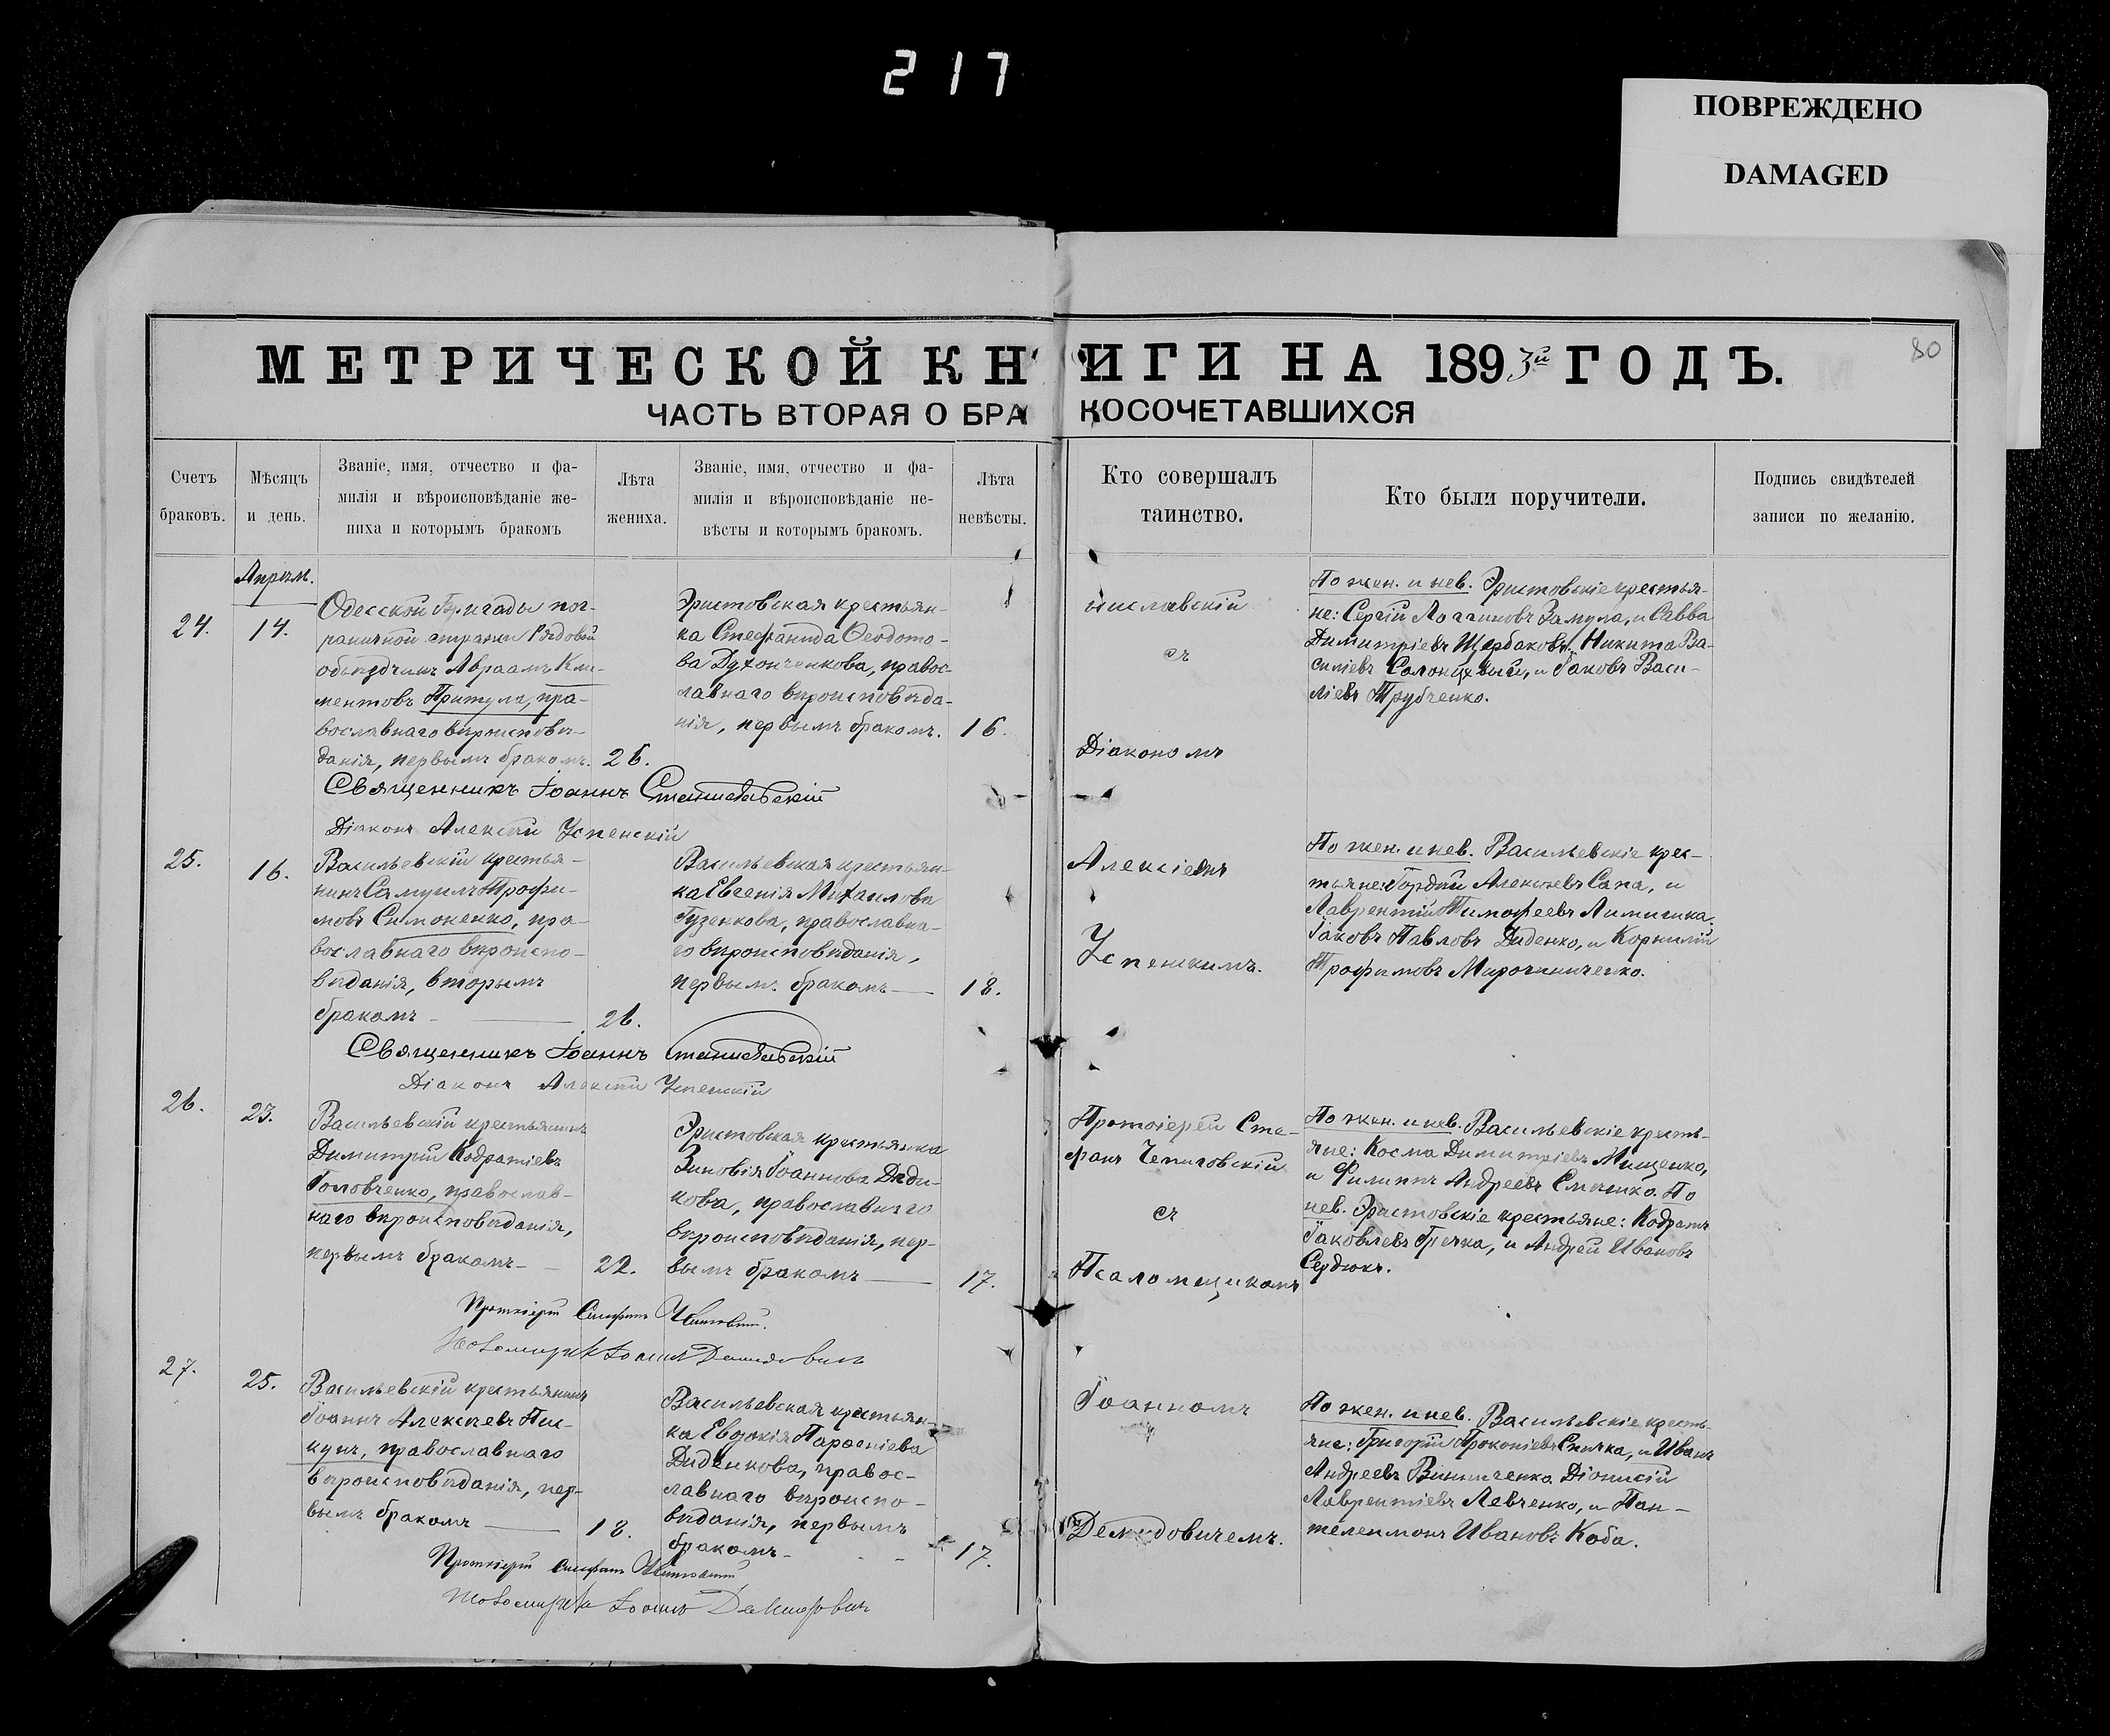 217
ПОВРЕЖДЕНО
DAMAGED
80
МЕТРИЧЕСКОЙ КНИГИ НА 1893й ГОДЪ.
ЧАСТЬ ВТОРАЯ О БРАКОСОЧЕТАВШИХСЯ
Счетъ
браковъ.
Мѣсяцъ
и день.
Званіе, имя, отчество и фа-
милія и вѣроисповѣданіе же-
ниха и которымъ бракомъ
Лѣта
жениха.
Званіе, имя, отчество и фа-
милія и вѣроисповѣданіе не-
вѣсты и которымъ бракомъ.
Лѣта
невѣсты.
Кто совершалъ
таинство.
Кто были поручители.
Подпись свидѣтелей
записи по желанію.
24.
Апрѣль.
14.
Одесской бригады пог-
раничной стражи рядовой
объѣздчикъ Авраамъ Кли-
ментовъ Притула, пра-
вославнаго вѣроисповѣ-
данія, первымъ бракомъ.
26.
Эристовская крестьян-
ка Стефанида Ѳеодото-
ва Духонченкова, правос-
лавнаго вѣроисповѣда-
нія, первымъ бракомъ.
16.
ниславскій
съ
Діакономъ
По жен. и нев. Эристовскіе крестья-
не: Сергій Логгиновъ Замула, и Савва
Димитріевъ Щербаковъ, Никита Ва-
силіевъ и Іаковъ Васи-
ліевъ Трубченко.
Священникъ Іоаннъ Станиславскій
Діаконъ Алексій Успенскій
25.
16.
Васильевскій крестья-
нинъ Самуилъ Трофи-
мовъ Симоненко, пра-
вославнаго вѣроиспо-
вѣданія, вторымъ
бракомъ
26.
Васильевская крестьян-
ка Евгенія Михаилова
Гузенкова, православна-
го вѣроисповѣданія,
первымъ бракомъ
18.
Алексіемъ
Успенскимъ.
По жен. и нев. Васильевскіе крес-
тьяне: Гордѣй Алексѣевъ Сапа, и
Лаврентій Тимофеевъ
Іаковъ Павловъ Диденко, и Корнилій
Трофимовъ Мирошниченко.
Священникъ Іоаннъ Станиславскій
Діаконъ Алексій Успенскій
26.
23.
Васильевскій крестьянинъ
Димитрій Кодратіевъ
Головченко, православ-
наго вѣроисповѣданія,
первымъ бракомъ
22.
Эристовская крестьянка
Зиновія Іоаннова Дѣди-
кова, православнаго
вѣроисповѣданія, пер-
вымъ бракомъ
17.
Протоіерей Сте-
фанъ
съ
Псаломщикомъ
По жен. и нев. Васильевскіе кресть-
яне: Косма Димитріевъ Мищенко,
и Филиппъ Андреевъ По
нев. Эристовскіе крестьяне: Кодратъ
Іаковлевъ Гречка, и Андрей Ивановъ
Сердюкъ.
Протоіерей Стефанъ
Псаломщикъ Іоаннъ Демидовичъ
27.
25.
Васильевскій крестьянинъ
Іоаннъ Алексѣевъ Пис-
кунъ, православнаго
вѣроисповѣданія, пер-
вымъ бракомъ
18.
Васильевская крестьян-
ка Евдокія Парѳеніева
Диденкова, правос-
лавнаго вѣроиспо-
вѣданія, первымъ
бракомъ
17.
Іоанномъ
Демидовичемъ.
По жен. и нев. Васильевскіе кресть-
яне: Григорій Прокопіевъ Спичка, и Иванъ
Андреевъ Винниченко Діонисій
Лаврентіевъ Левченко, и Пан-
телеимонъ Ивановъ Коба.
Протоіерей Стефанъ
Псаломщикъ Іоаннъ Демидовичъ